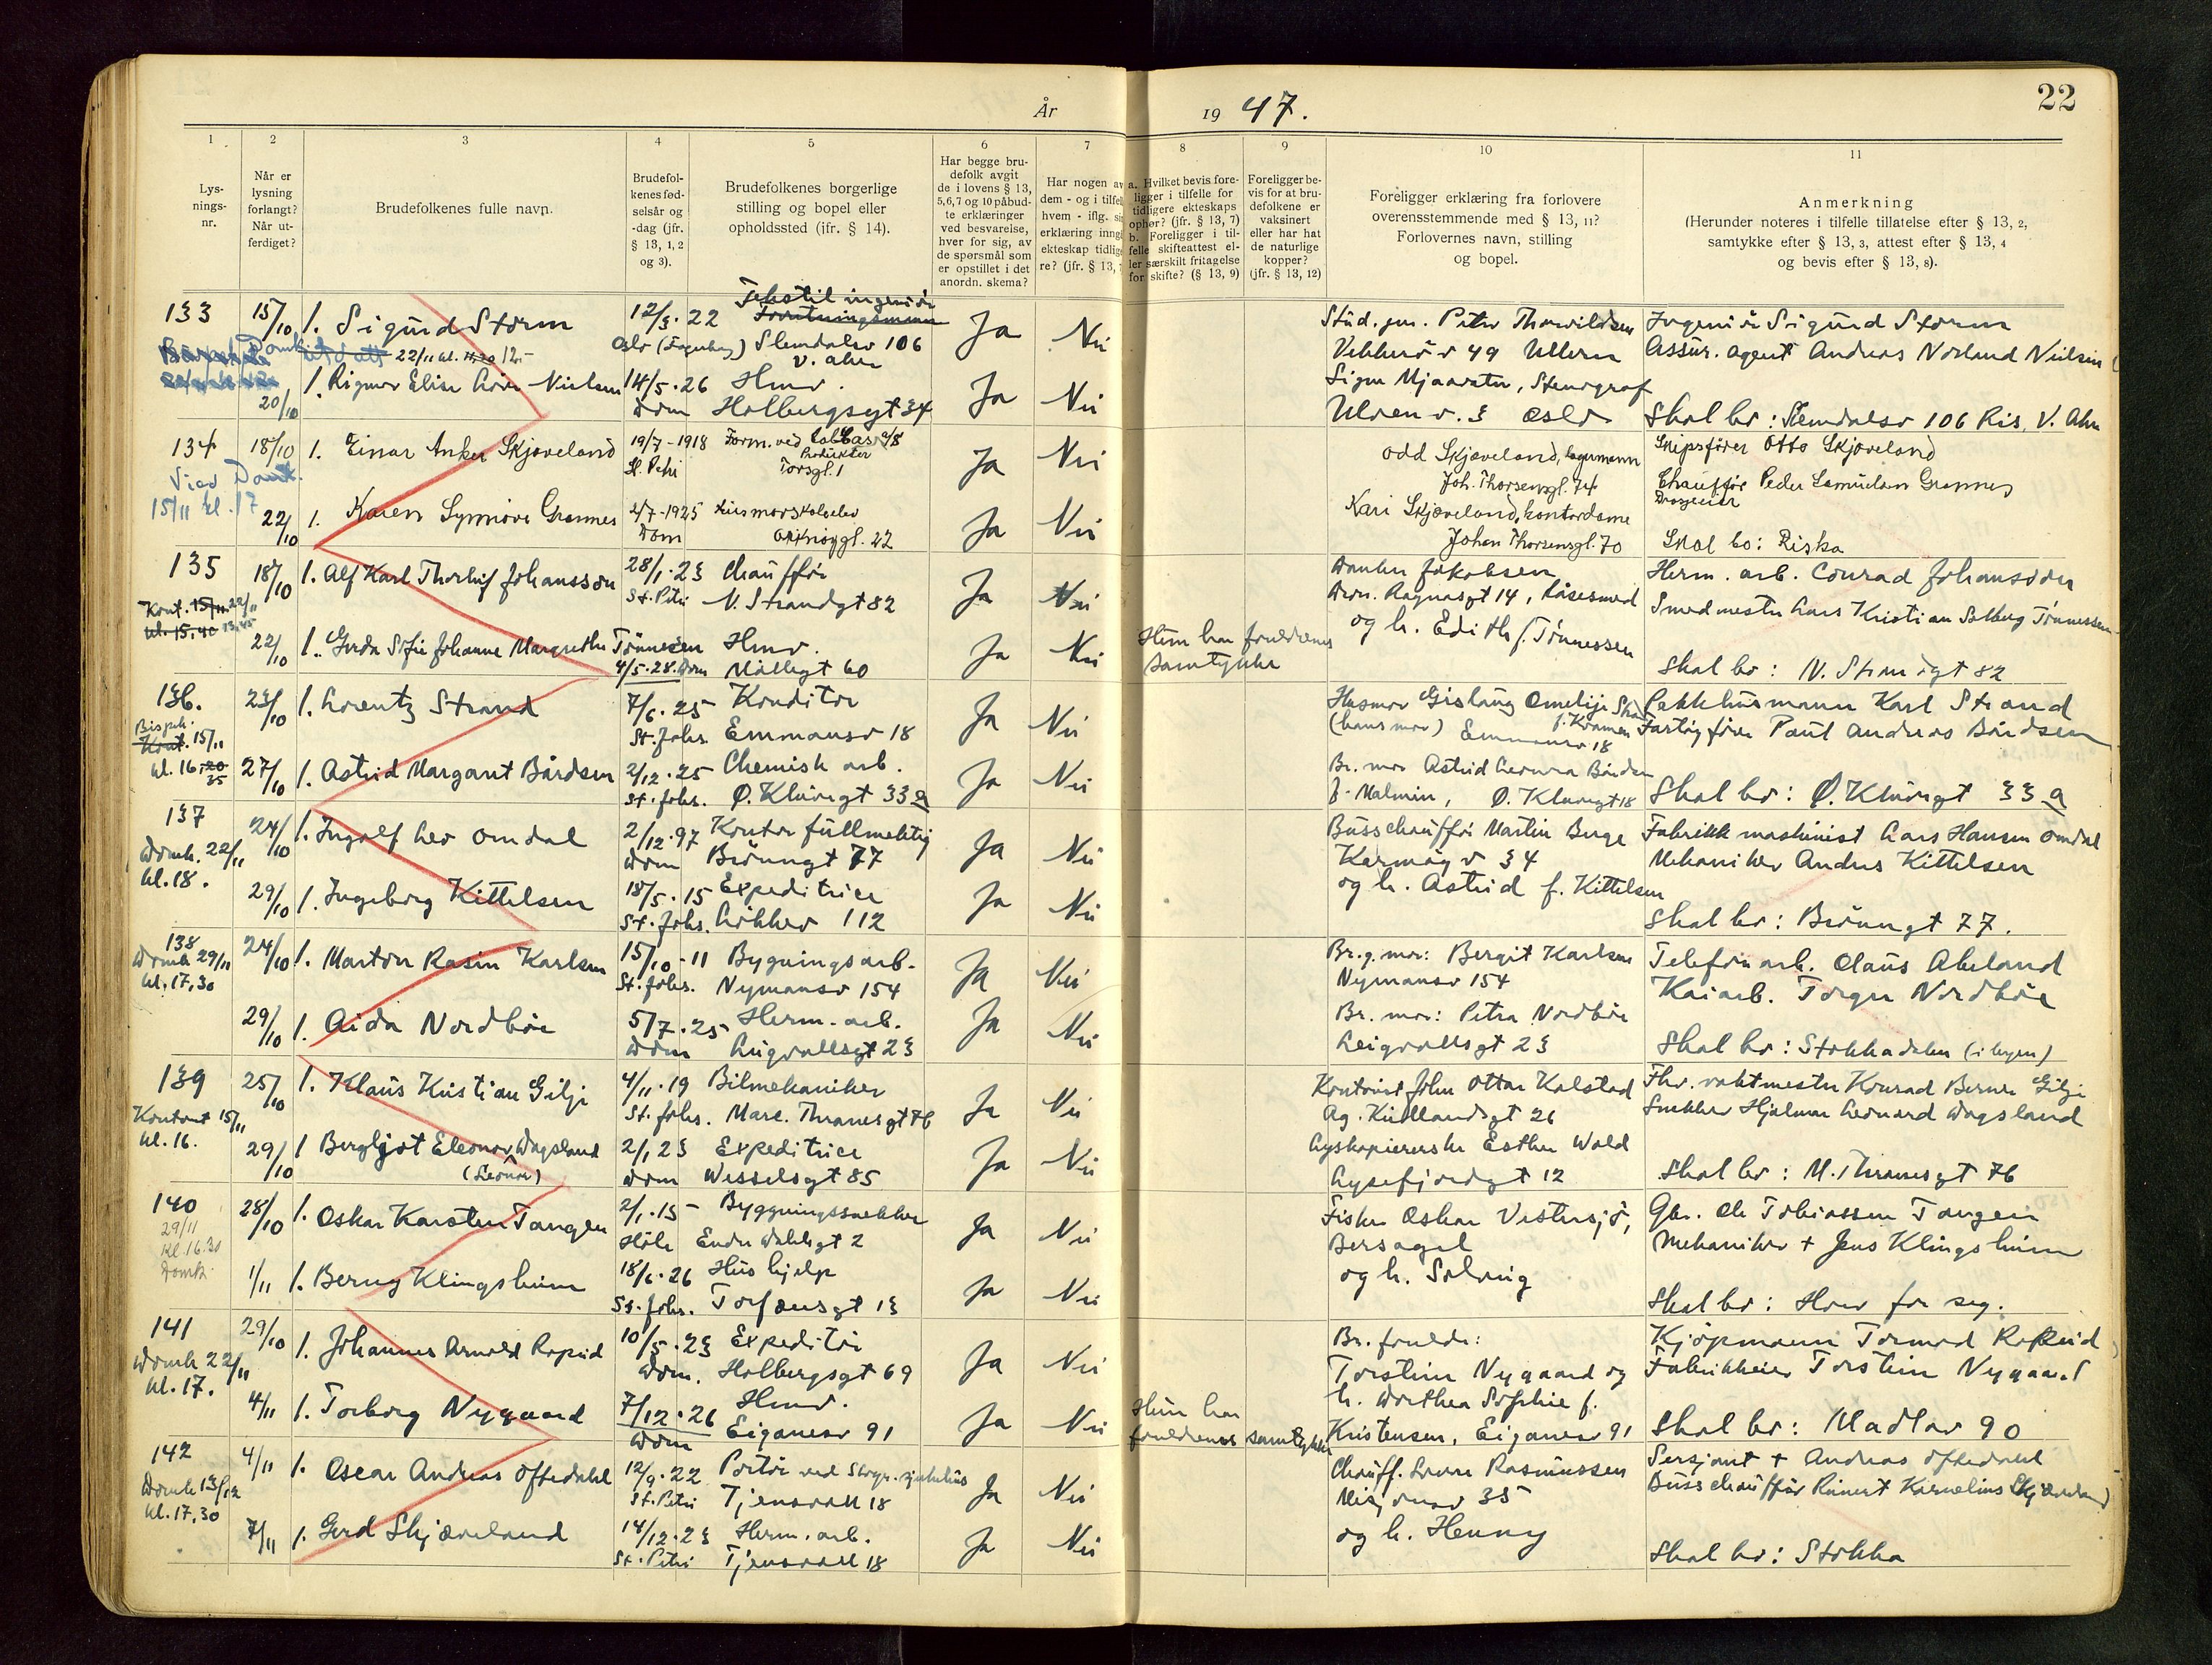 22
År 19 47.
1 2 3 4 5 6 7 8 9 10 11
Lys-
nings-
nr.
Når er
lysning
forlangt?
Når ut-
ferdiget?
Brudefolkenes fulle navn.
Brudefol-
kenes fød-
selsår og
-dag (jfr.
§ 13, 1, 2
og 3).
Brudefolkenes borgerlige
stilling og bopel eller
opholdssted (jfr. § 14).
Har begge bru-
defolk avgit
de i lovens § 13,
5,6,7 og 10 påbud-
te erklæringer
ved besvarelse,
hver for sig, av
de spørsmål som
er opstillet i det
anordn. skema?
Har nogen av
dem - og i tilfel
hvem - iflg. si
erklæring inng
ekteskap tidlig
re? (jfr. § 13,
a. Hvilket bevis fore-
ligger i tilfelle for
tidligere ekteskaps
ophør? (jfr. § 13, 7)
b. Foreligger i til-
felle skifteattest el-
ler særskilt fritagelse
for skifte? (§ 13, 9)
Foreligger be-
vis for at bru-
defolkene er
vaksinert
eller har hat
de naturlige
kopper?
(jfr. § 13, 12)
Foreligger erklæring fra forlovere
overensstemmende med § 13, 11?
Forlovernes navn, stilling
og bopel.
Anmerkning
(Herunder noteres i tilfelle tillatelse efter § 13, 2,
samtykke efter § 13, 3, attest efter § 13, 4
og bevis efter § 13, 8).
133 15/10 1. Sigurd Storm 12/3.22 Tekstilingeniör Ja Nei
Oslo Slemdalsv 106
V. Aker
22/11 kl. 12-
20/10 1. Rigmor Elise Nielsen 14/5.26 Hmv. Ja Nei
Dom Holbergsgt 34
Stud. jur. Peter Thorvildsen
Vekkerö v 49 Ullern
Sigm Mjaavatn, Stenograf
Ulven v. 3 Oslo
Ingeniör Sigurd Storm
Assur. agent Andreas Norland Nielsen
Skal bo: Slemdalsv 106 Ris, V. Aker
134 18/10 1. Einar Anker Skjæveland 19/7-1918 Form. ved Ja Nei
Produkter
St. Petri Torsgt. 1
Viet Domk.
15/11 kl. 17
22/10 1. Karen Synnöve Grannes 2/7-1925 Husmorskoleelev Ja Nei
Dom gt. 22
Odd Skjæveland, lagermann
Joh. Thorsensgt. 74
Kari Skjæveland, kontordame
Johan Thorsensgt. 70
Skipsförer Otto Skjæveland
Chaufför Peder Samuelsen Grannes
Drosjeeier
Skal bo: Riska
135 18/10 1. Alf Karl Thorleif Johansson 28/1.23 Chaufför Ja Nei
St. Petri N. Strandgt 82
Kont. 15/11 22/11
kl. 15,40 13,45
22/10 1. Gerda Sofie Johanne Margrethe Tönnesen Hmv. Ja Nei
4/5.28. Dom Möllegt 60
Hun har foreldrenes
samtykke
Jakobsen
Dron. Ragnasgt 14, Låsesmed
og h. Edith f. Tönnessen
Herm. arb. Conrad Johansson
Smedmester Lars Kristian Solberg Tönnessen
Skal bo: N. Strandgt 82
136. 23/10 1. Lorentz Strand 7/6.25 Konditor Ja Nei
St. Johs. Emmausv 18
Bispek.
Kont. 15/11
kl. 16,20
35
27/10 1. Astrid Margaret Bårdsen 2/12.25 Chemisk arb. Ja Nei
St. Johs. Ø. Kleivegt 33 a
Husmor Gislaug Emelije Strand
(hans mor) f. Kramer
Emmausv 18
Br. mor Astrid Leonora Bårdsen
f. Malmin, Ø. Kleivegt 18
Pakkhusmann Karl Strand
Fartöyförer Paul Andreas Bårdsen
Skal bo: Ø. Kleivgt 33 a
137 24/10 1. Ingolf Leo Omdal 2/12.97 Kontorfullmektig Ja Nei
Dom Breiungt 77
Domk. 22/11
kl. 18.
29/10 1. Ingeborg Kittelsen 18/5.15 Expeditrice Ja Nei
St. Johs. Lökkev 112
Busschauffør Martin Berge
Karmöy v 34
og h. Astrid f. Kittelsen
Fabrikkmaskinist Lars Hansen Omdal
Mekaniker Anders Kittelsen
Skal bo: Breiungt 77.
138 24/10 1. Marton Rasin Karlsen 15/10-11 Bygningsarb. Ja Nei
St. Johs. Nymansv 154
Domk 29/11
kl. 17,30
29/10 1. Aida Nordböe 5/7.25 Herm. arb. Ja Nei
Dom Leigvollsgt 23
Br.g. mor: Bergit Karlsen
Nymansv 154
Br. mor: Petra Nordböe
Leigvollsgt 23
Telefonarb. Claus Abeland
Kaiarb. Torger Nordböe
Skal bo: Stokkadalen (i byen)
139 25/10 1. Klaus Kristian Gilje 4/11.19 Bilmekaniker Ja Nei
St. Johs. Marc. Thranesgt 76
Kontoret 15/11
kl. 16.
29/10 1 Bergljot Eleonor Dagsland 2/1 23 Expeditrice Ja Nei
(Leonor) Dom Wesselsgt 85
Kontorist John Ottar Kolstad
Ag. Kiellandsgt 26
Lyskopiererske Esther Wold
Lysefjordgt 12
Fhv. vaktmester Konrad Berner Gilje
Snekker Hjalmar Leonard Dagsland
Skal bo: M. Thranesgt 76
140 28/10 1. Oskar Karsten Tangen 2/1.15 Byggningssnekker Ja Nei
Höle Endre Dahlsgt 2
29/11
Kl. 16.30
Domk.
1/11 1. Berny Klingsheim 18/6.26 Hushjelp Ja Nei
St. Johs. Torfæusgt 13
Fisker Oskar Vestersjö,
Bersagel
og h. Solveig
Gbr. Ole Tobiassen Tangen
Mekaniker + Jens Klingsheim
Skal bo: Hver for seg.
141 29/10 1. Johannes Arnold Ropeid 10/5.23 Expeditör Ja Nei
Dom. Holbergsgt 69
Domk 22/11
kl. 17.
4/11 1. Torborg Nygaard 7/12.26 Hmv. Ja Nei
Dom Eiganesv 91
Hun har
foreldrenes samtykke
Br. foreldre:
Torstein Nygaard og
h. Dorthea Sophie f.
Kristensen, Eiganesv 91
Kjöpmann Tormod Ropeid
Fabrikkeier Torstein Nygaard
Skal bo: Madlav 90
142 4/11 1. Oscar Andreas Oftedahl 12/9.22 Portör ved sjukehus Ja Nei
St. Petri Tjensvoll 18
Domk 13/12
kl. 17,30
7/11 1. Gerd Skjæveland 14/12.23 Herm. arb. Ja Nei
St. Petri Tjensvoll 18
Chauff. Sverre Rasmussen
Misjonsv 35
og h. Henny
Sersjant + Andreas Oftedahl
Busschauffør Reinert Kornelius Skjæveland
Skal bo: Stokka